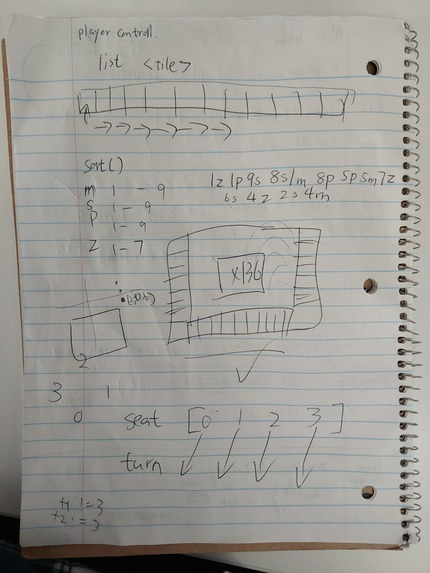 player control.
list <tile>
sort()
m 1 - 9
s 1 - 9
p 1 - 9
z 1 - 7
1z 1p 9s 8s 1m 8p 5p 5m 7z
6s 4z 2s 4m
x136
2
3 1
0
seat [0 1 2 3 ]
turn
+1 != 3
+2 != 3